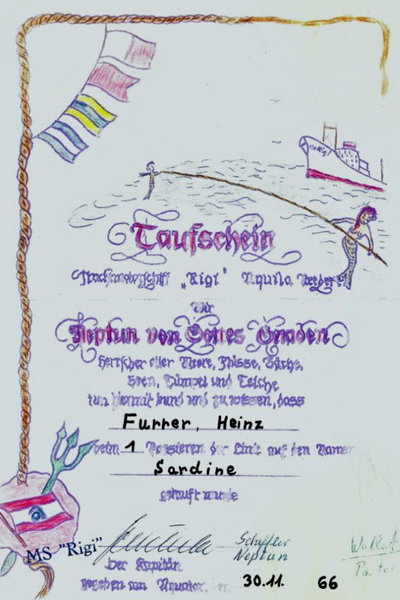 Taufschein
"Rigi"
Wir
Neptun von Gottes Gnaden
Herrscher aller Meere, Flüsse, Bäche,
Seen, Tümpel und Teiche
tun hiermit kund und zu wissen, dass
Furrer, Heinz
beim 1 Passieren der Linie auf den Namen
Sardine
getauft wurde
MS "Rigi"
Neptun
Der Kapitän
Gegeben am Äquator, den 30.11. 66